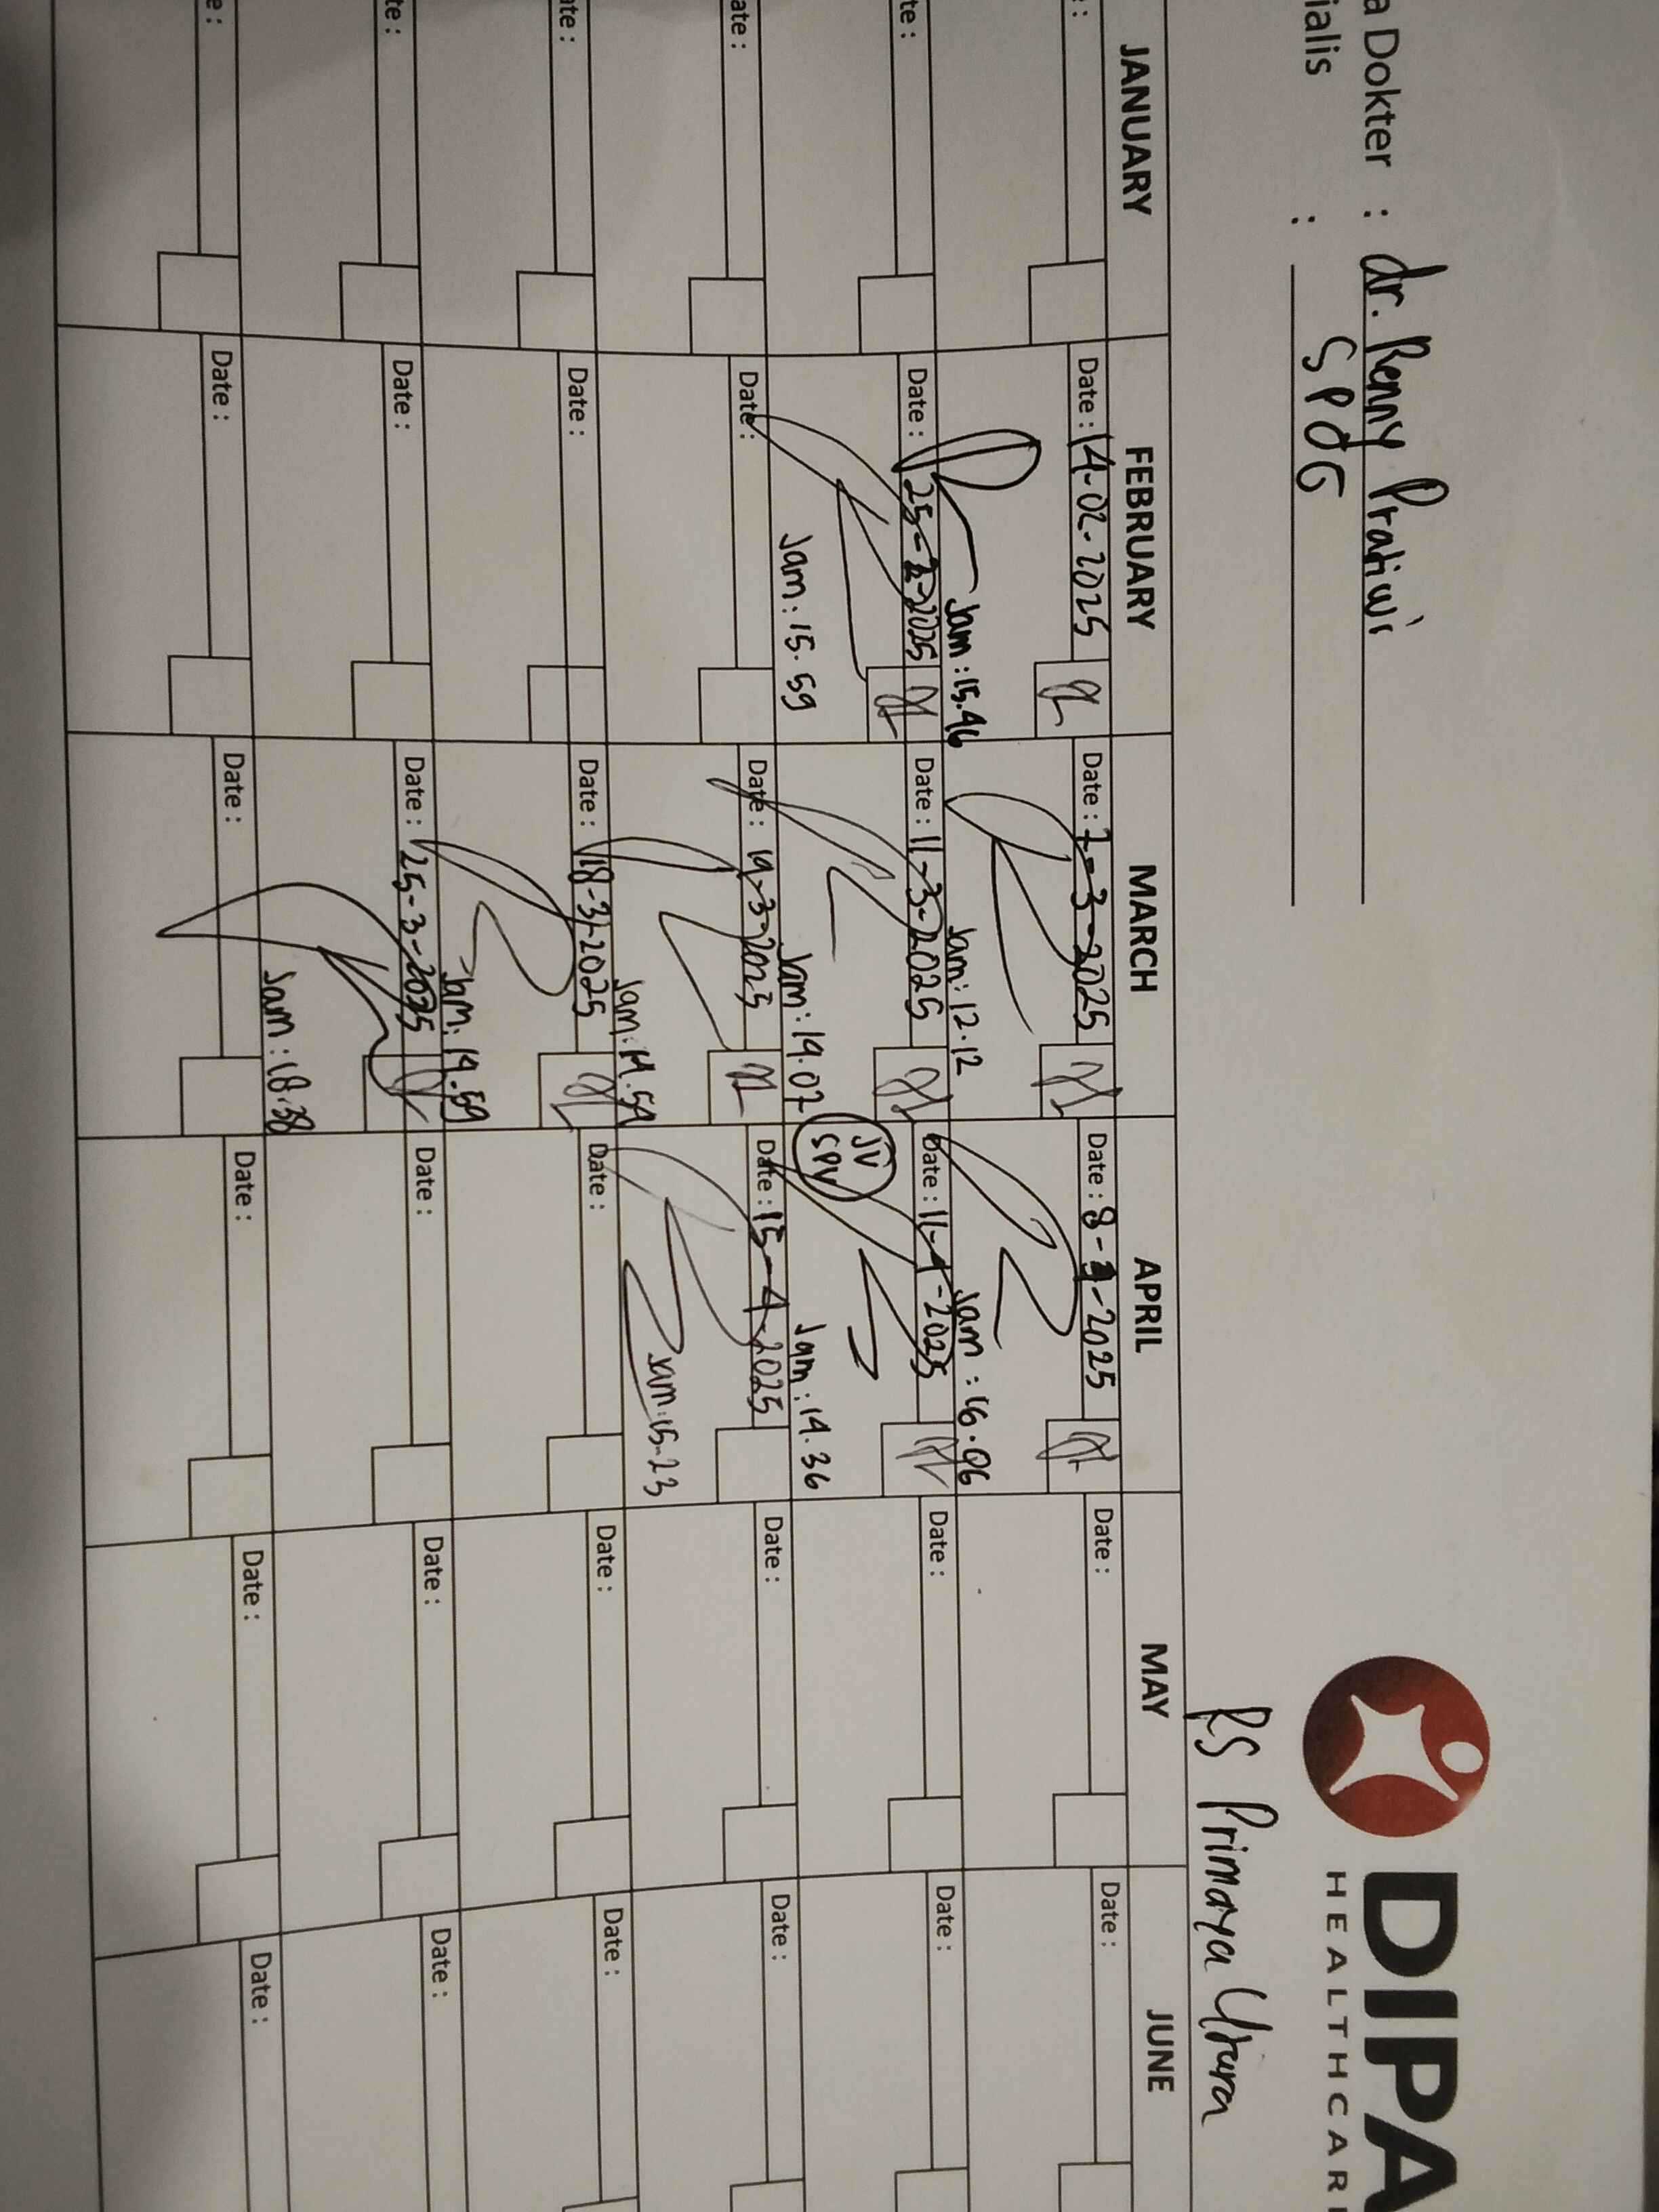 DIPA
HEALTHCAR
a Dokter : dr. Renny Pratiwi
ialis : SPdG
RS Primaya Utara
JANUARY FEBRUARY MARCH APRIL MAY JUNE
: Date : 14-02-2025 Date : 7-3-2025 Date : 8-4-2025 Date : Date :
Jam : 15.46 Jam : 12.12 Jam : 16.06
te : Date : 25-2-2025 Date : 11-3-2025 Date : 11-4-2025 Date : Date :
Jam : 15.59 Jam : 14.07 JV SPV Jam : 14.36
ate : Date : Date : 14-3-2025 Date : 15-4-2025 Date : Date :
Jam : 14.59 Jam : 15.23
ate : Date : Date : 18-3-2025 Date : Date : Date :
Jam : 14.59
te : Date : Date : 25-3-2025 Date : Date : Date :
Jam : 18.38
e : Date : Date : Date : Date : Date :